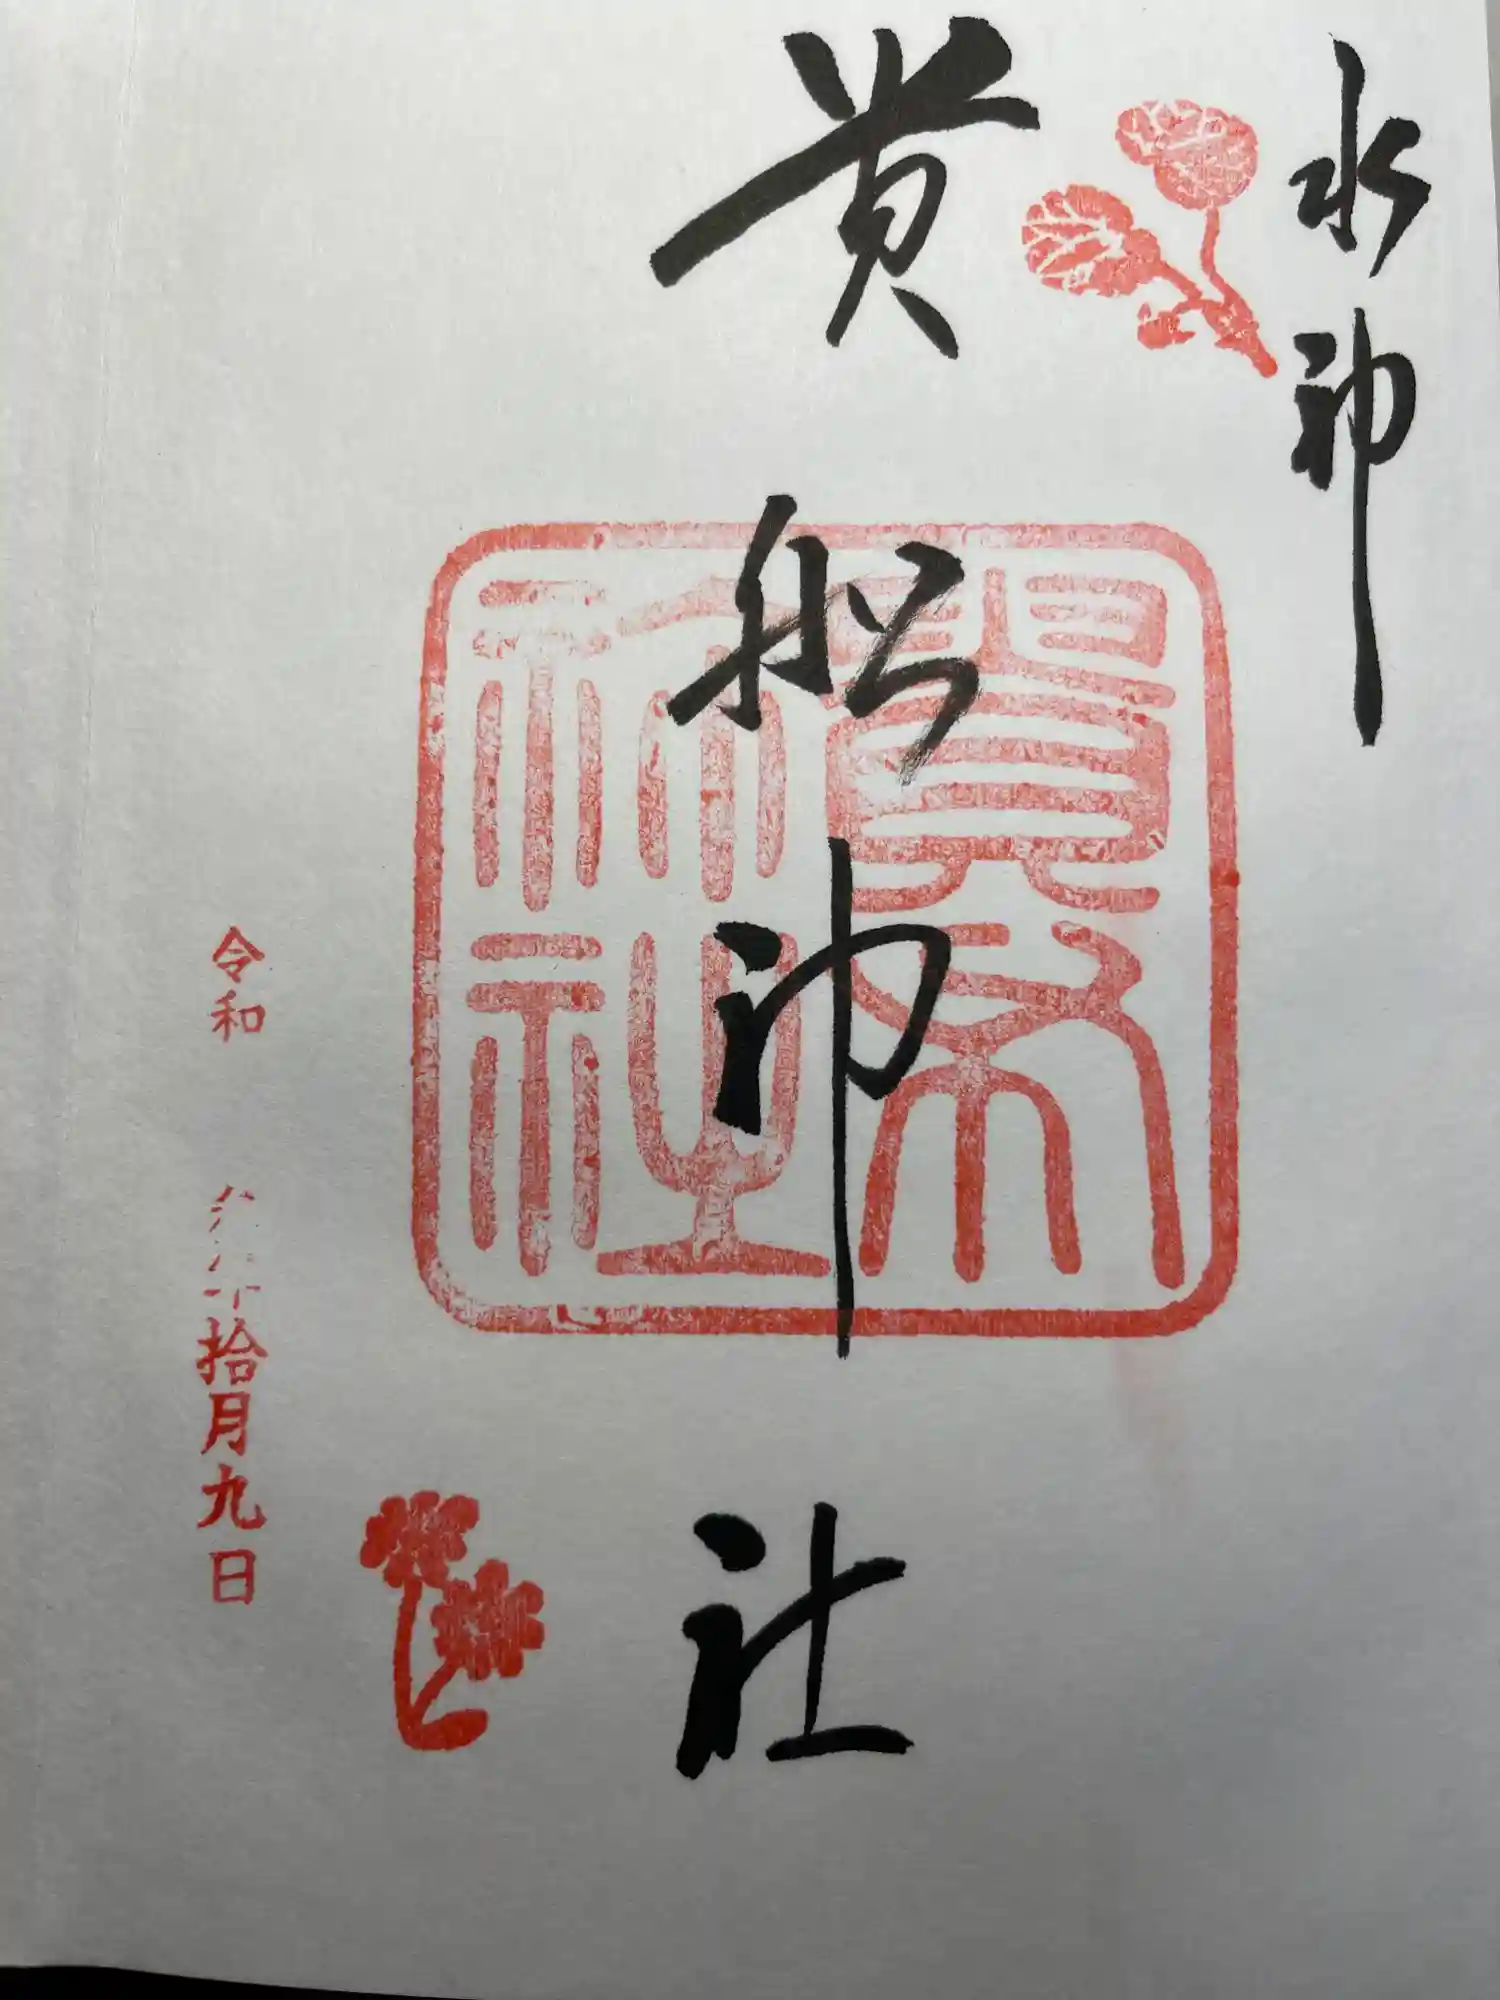 水神
貴船神社
貴布
祢社
令和
拾月九日